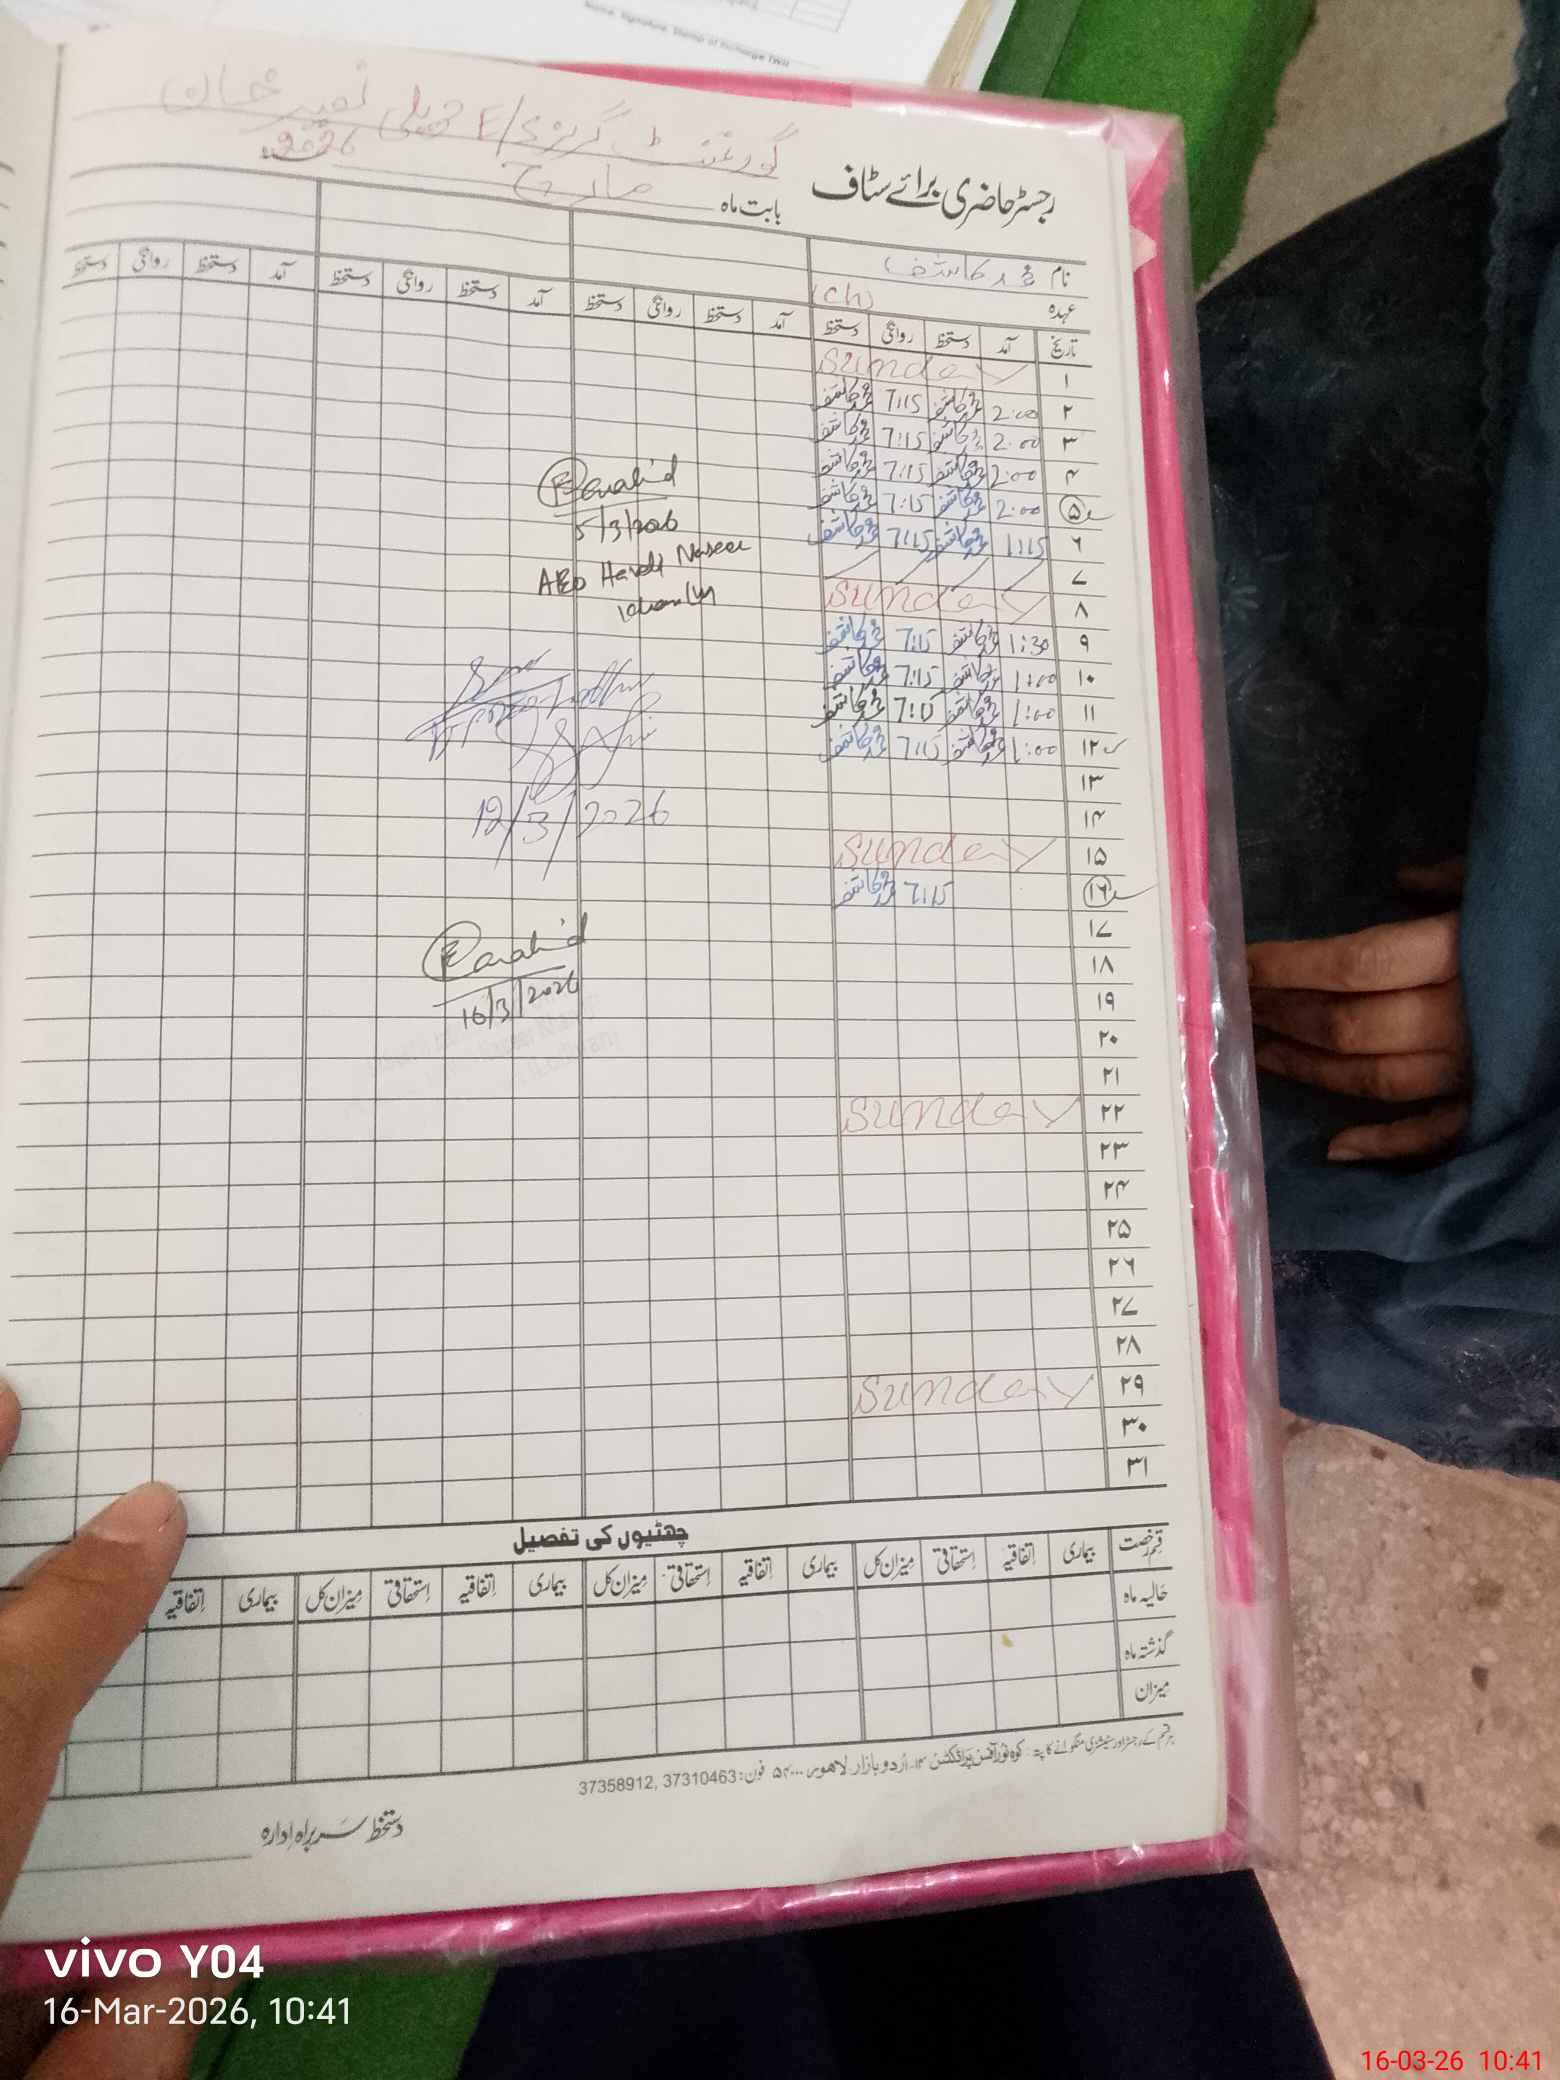 Name, Signature, Stamp of
گورنمنٹ گرلز E/S حویلی نصیر خان
رجسٹر حاضری برائے سٹاف
بابت ماہ مارچ 2026
نام محمد کاشف
عہدہ (Ch)
تاریخ آمد دستخط روانگی دستخط آمد دستخط روانگی دستخط آمد دستخط روانگی دستخط آمد دستخط روانگی دستخط
۱ Sunday
۲ 2:00 محمد کاشف 7:15 محمد کاشف
۳ 2:00 محمد کاشف 7:15 محمد کاشف
۴ 2:00 محمد کاشف 7:15 محمد کاشف
۵ 2:00 محمد کاشف 7:15 محمد کاشف
۶ 1:15 محمد کاشف 7:15 محمد کاشف
۷
۸ Sunday
۹ 1:30 محمد کاشف 7:15 محمد کاشف
۱۰ 1:00 محمد کاشف 7:15 محمد کاشف
۱۱ 1:00 محمد کاشف 7:15 محمد کاشف
۱۲ 1:00 محمد کاشف 7:15 محمد کاشف
۱۳
۱۴
۱۵ Sunday
۱۶ 7:15 محمد کاشف
۱۷
۱۸
۱۹
۲۰
۲۱
۲۲ Sunday
۲۳
۲۴
۲۵
۲۶
۲۷
۲۸
۲۹ Sunday
۳۰
۳۱
5/3/2026
AEO Haveli Naseer
Khan
12/3/2026
16/3/2026
چھٹیوں کی تفصیل
قسم رخصت بیماری اتفاقیہ استحقاقی میزان کل بیماری اتفاقیہ استحقاقی میزان کل بیماری اتفاقیہ استحقاقی میزان کل بیماری اتفاقیہ
حالیہ ماہ
گذشتہ ماہ
میزان
ہر قسم کے رجسٹر اور سٹیشنری منگوانے کا پتہ: کوہ نور آفسٹ پراڈکشن ۱۴۔ اُردو بازار لاہور ۵۴۰۰۰ فون: 37310463, 37358912
دستخط سربراہ ادارہ
vivo Y04
16-Mar-2026, 10:41
16-03-26 10:41